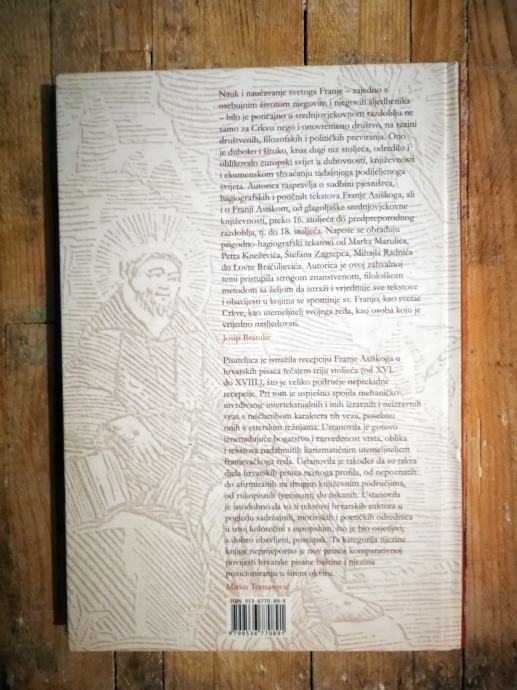 Nauk i naučavanje svetoga Franje – zajedno s
osebujnim životom njegovim i njegovih sljedbenika
– bilo je poticajno u srednjovjekovnom razdoblju ne
samo za Crkvu nego i onovremeno društvo, na razini
društvenih, filozofskih i političkih previranja. Ono
je duboko i široko, kroz dugi niz stoljeća, odredilo i
oblikovalo europski svijet u duhovnosti, književnosti
i ekumenskom shvaćanju tadašnjega podijeljenoga
svijeta. Autorica raspravlja o sudbini pjesništva,
hagiografskih i poetičnih tekstova Franje Asiškoga, ali
i o Franji Asiškom, od glagoljaške srednjovjekovne
književnosti, preko 16. stoljeća do predpreporodnog
razdoblja, tj. do 18. stoljeća. Napose se obrađuju
prigodno-hagiografski tekstovi od Marka Marulića,
Petra Kneževića, Štefana Zagrepca, Mihajla Radnića
do Lovre Bračuljevića. Autorica je ovoj zahvalnoj
temi pristupila strogom znanstvenom, filološkom
metodom sa željom da istraži i vrjednuje sve tekstove
i obavijesti u kojima se spominje sv. Franjo, kao svetac
Crkve, kao utemeljitelj svojega reda, kao osoba koju je
vrijedno nasljedovati.
Josip Bratulić
Pisateljica je istražila recepciju Franje Asiškoga u
hrvatskih pisaca tečajem triju stoljeća (od XVI.
do XVIII.), što je veliko područje neprekidne
recepcije. Pri tom je uspješno spojila mehaničko
utvrđivanje intertekstualnih i inih izravnih i neizravnih
veza s raščlambom karaktera tih veza, posebno
onih s estetskim težnjama. Ustanovila je gotovo
iznenađujuće bogatstvo i razvedenost vrsta, oblika
i tekstova nadahnutih karizmatičnim utemeljiteljem
franjevačkoga reda. Ustanovila je također da su takva
djela hrvatskih pisaca raznoga profila, od nepoznatih
do afirmiranih na drugim književnim područjima,
od rukopisnih (većinom) do tiskanih. Ustanovila
je istodobno da su ti tekstovi hrvatskih auktora u
pogledu sadržajnih, motivskih i poetičkih odrednica
u istoj kolotečini s europskim, što je bio osjetljivi,
a dobro obavljeni, postupak. Ta kategorija njezine
knjige neprijeporno je nov prinos komparativnoj
povijesti hrvatske pisane baštine i njezinu
pozicioniranju u širem okviru.
Mirko Tomasović
ISBN 953-6770-89-X
9799536770891